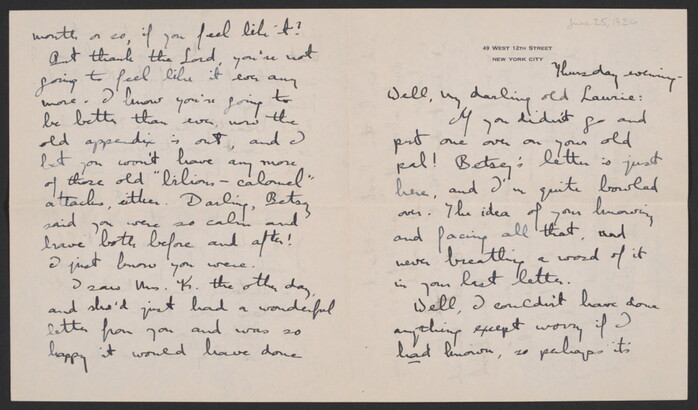 month or so, if you feel like it?
But thank the Lord, you're not
going to feel like it ever any
more. I know you're going to
be better than ever, now the
old appendix is out, and I
bet you won't have any more
of those old "bilious - calomel"
attacks, either. Darling, Betsy
said you were so calm and
brave both before and after!
I just know you were.
I saw Mrs. K. the other day,
and she'd just had a wonderful
letter from you and was so
happy it would have done
June 25,
49 WEST 12TH STREET
NEW YORK CITY
Thursday evening -
Well, my darling old Laurie:
If you didn't go and
put one over on your old
pal! Betsy's letter is just
here, and I'm quite bowled
over. The idea of your knowing
and facing all that, and
never breathing a word of it
in your last letter.
Well, I couldn't have done
anything except worry if I
had known, so perhaps it's